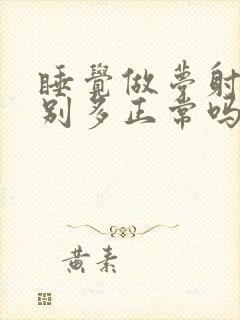 睡覺做夢射
别多正常吗
黄素